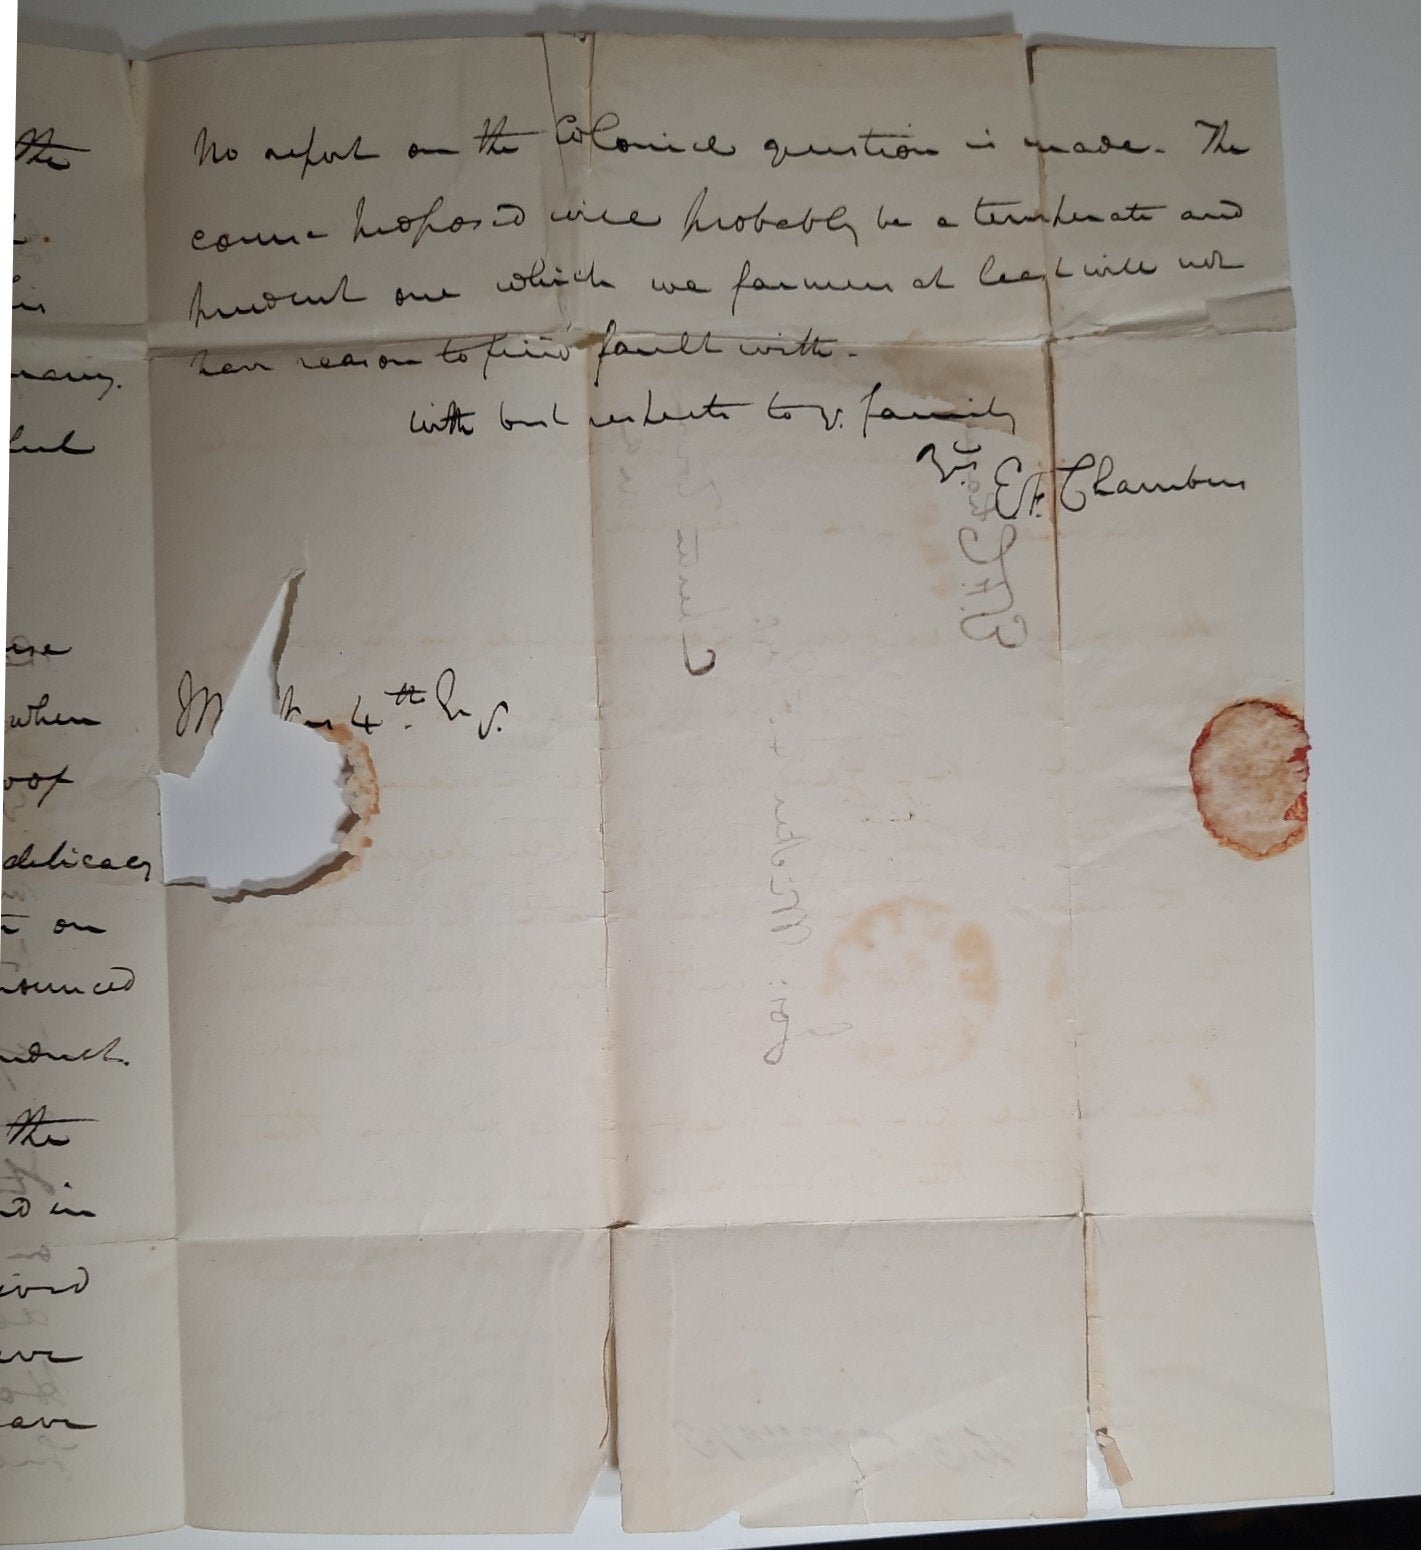 the
his
many.
ful
use
when
oof
delicacy
on
nounced
nduct.
the
d in
ived
eve
eave
No report on the Colonial question is made. The
course proposed will probably be a temperate and
prudent one which we farmers at least will not
have reason to find fault with.
with best respects to yr. family
Yrs. E.F. Chambers
4th Esq.